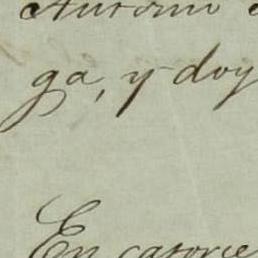 Antonio
ga, y doy
En catorce